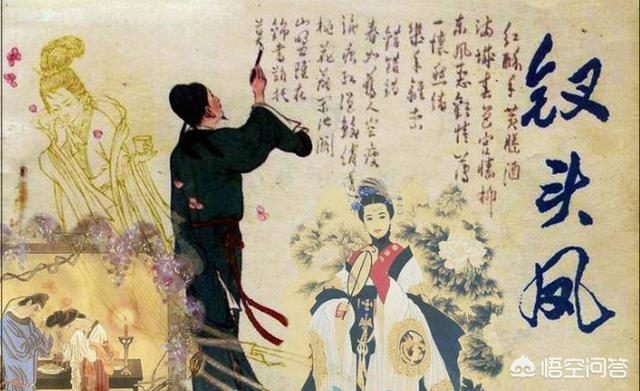 钗头凤
红酥手 黄縢酒
满城春色宫墙柳
东风恶 欢情薄
一怀愁绪
几年离索
错错错
春如旧人空瘦
泪痕红浥鲛绡透
桃花落闲池阁
山盟虽在
锦书难托
莫
悟空问答